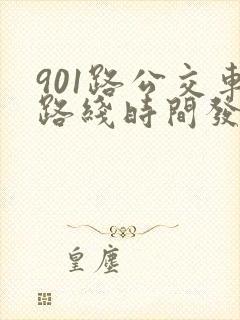 901路公交車
路綫時間發
皇塵